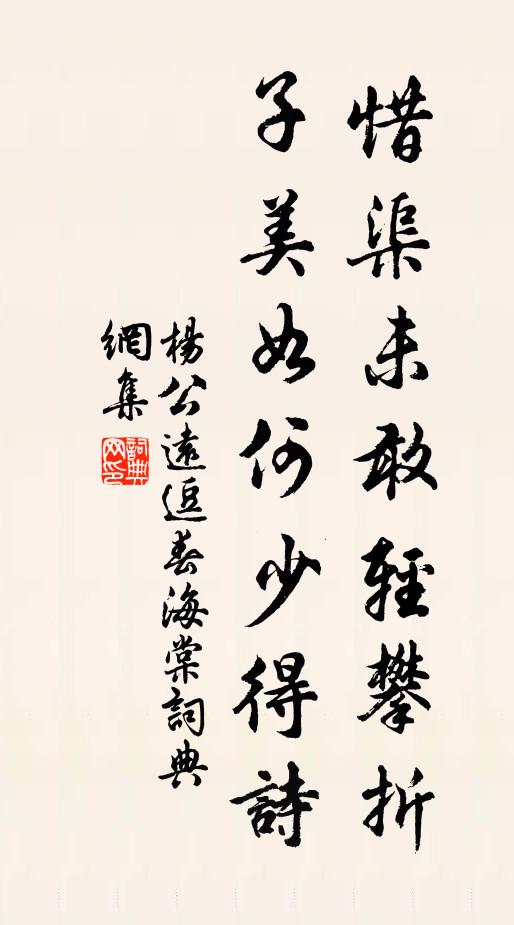 惜渠未敢輕攀折
子美如何少得詩
楊公遠逗春海棠詞典
網集
詞典
網印